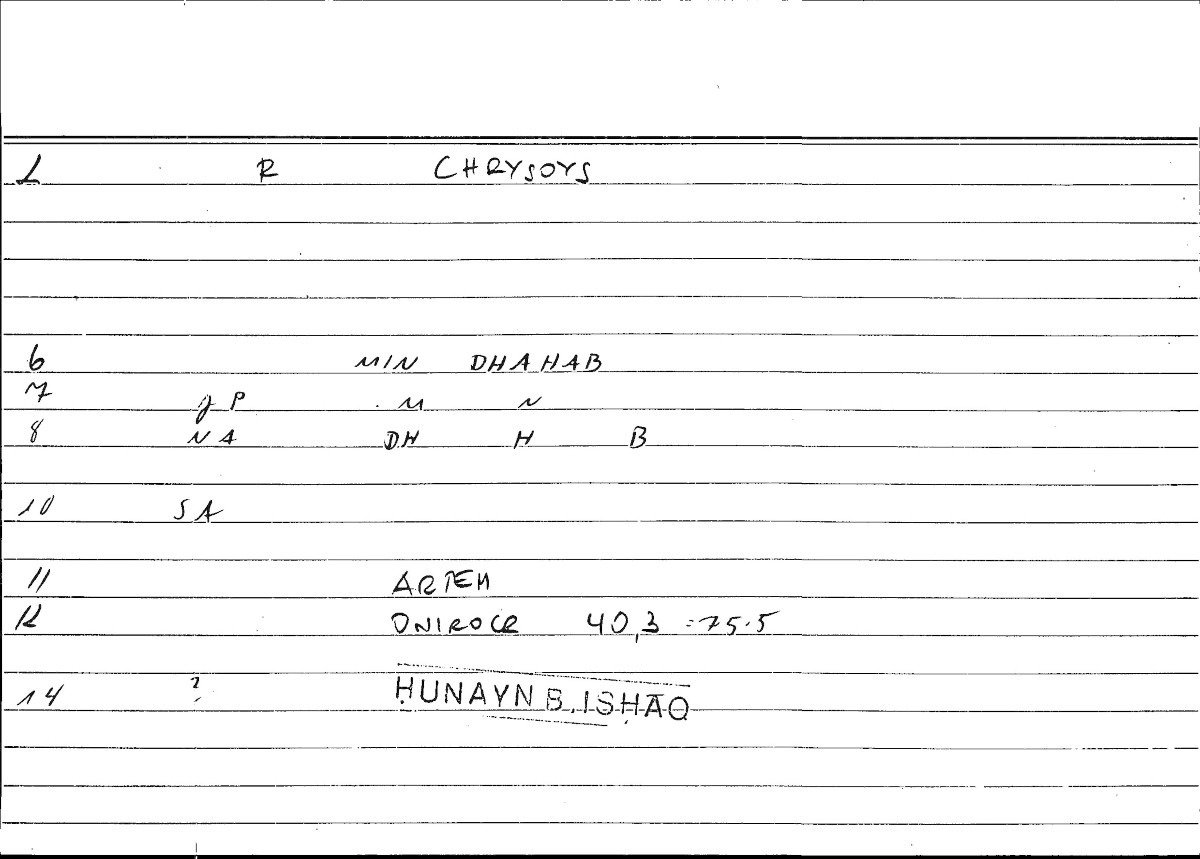 1 R CHRYSOYS
6 MIN DHAHAB
7 J P M N
8 N A DH H B
10 S A
11 ARTEM
12 ONIROCR 40,3 = 75.5
14 ? ḤUNAYN B. ISḤĀQ